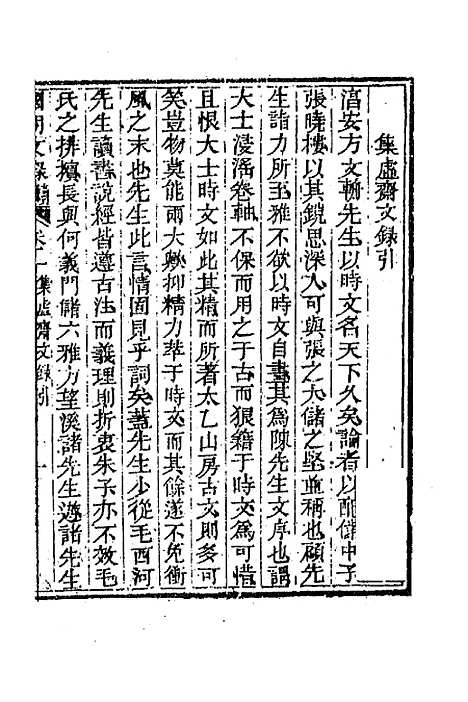 集虛齋文錄引
淳安方文輈先生以時文名天下久矣論者以配儲中子
張曉樓以其銳思深入可與張之大儲之堅並稱也顧先
生詣力所至雅不欲以時文自畫其為陳先生文序也謂
大士浸淫卷軸不保而用之于古而狠籍于時文為可惜
且恨大士時文如此其精而所著太乙山房古文則多可
笑豈物莫能兩大歟抑精力萃于時文而其餘遂不免衝
風之末也先生此言情固見乎詞矣蓋先生少從毛西河
先生讀書說經皆遵古注而義理則折衷朱子亦不效毛
氏之排擯長與何義門儲六雅方望溪諸先生遊諸先生
國朝文錄 卷一集虛齋文錄引 一